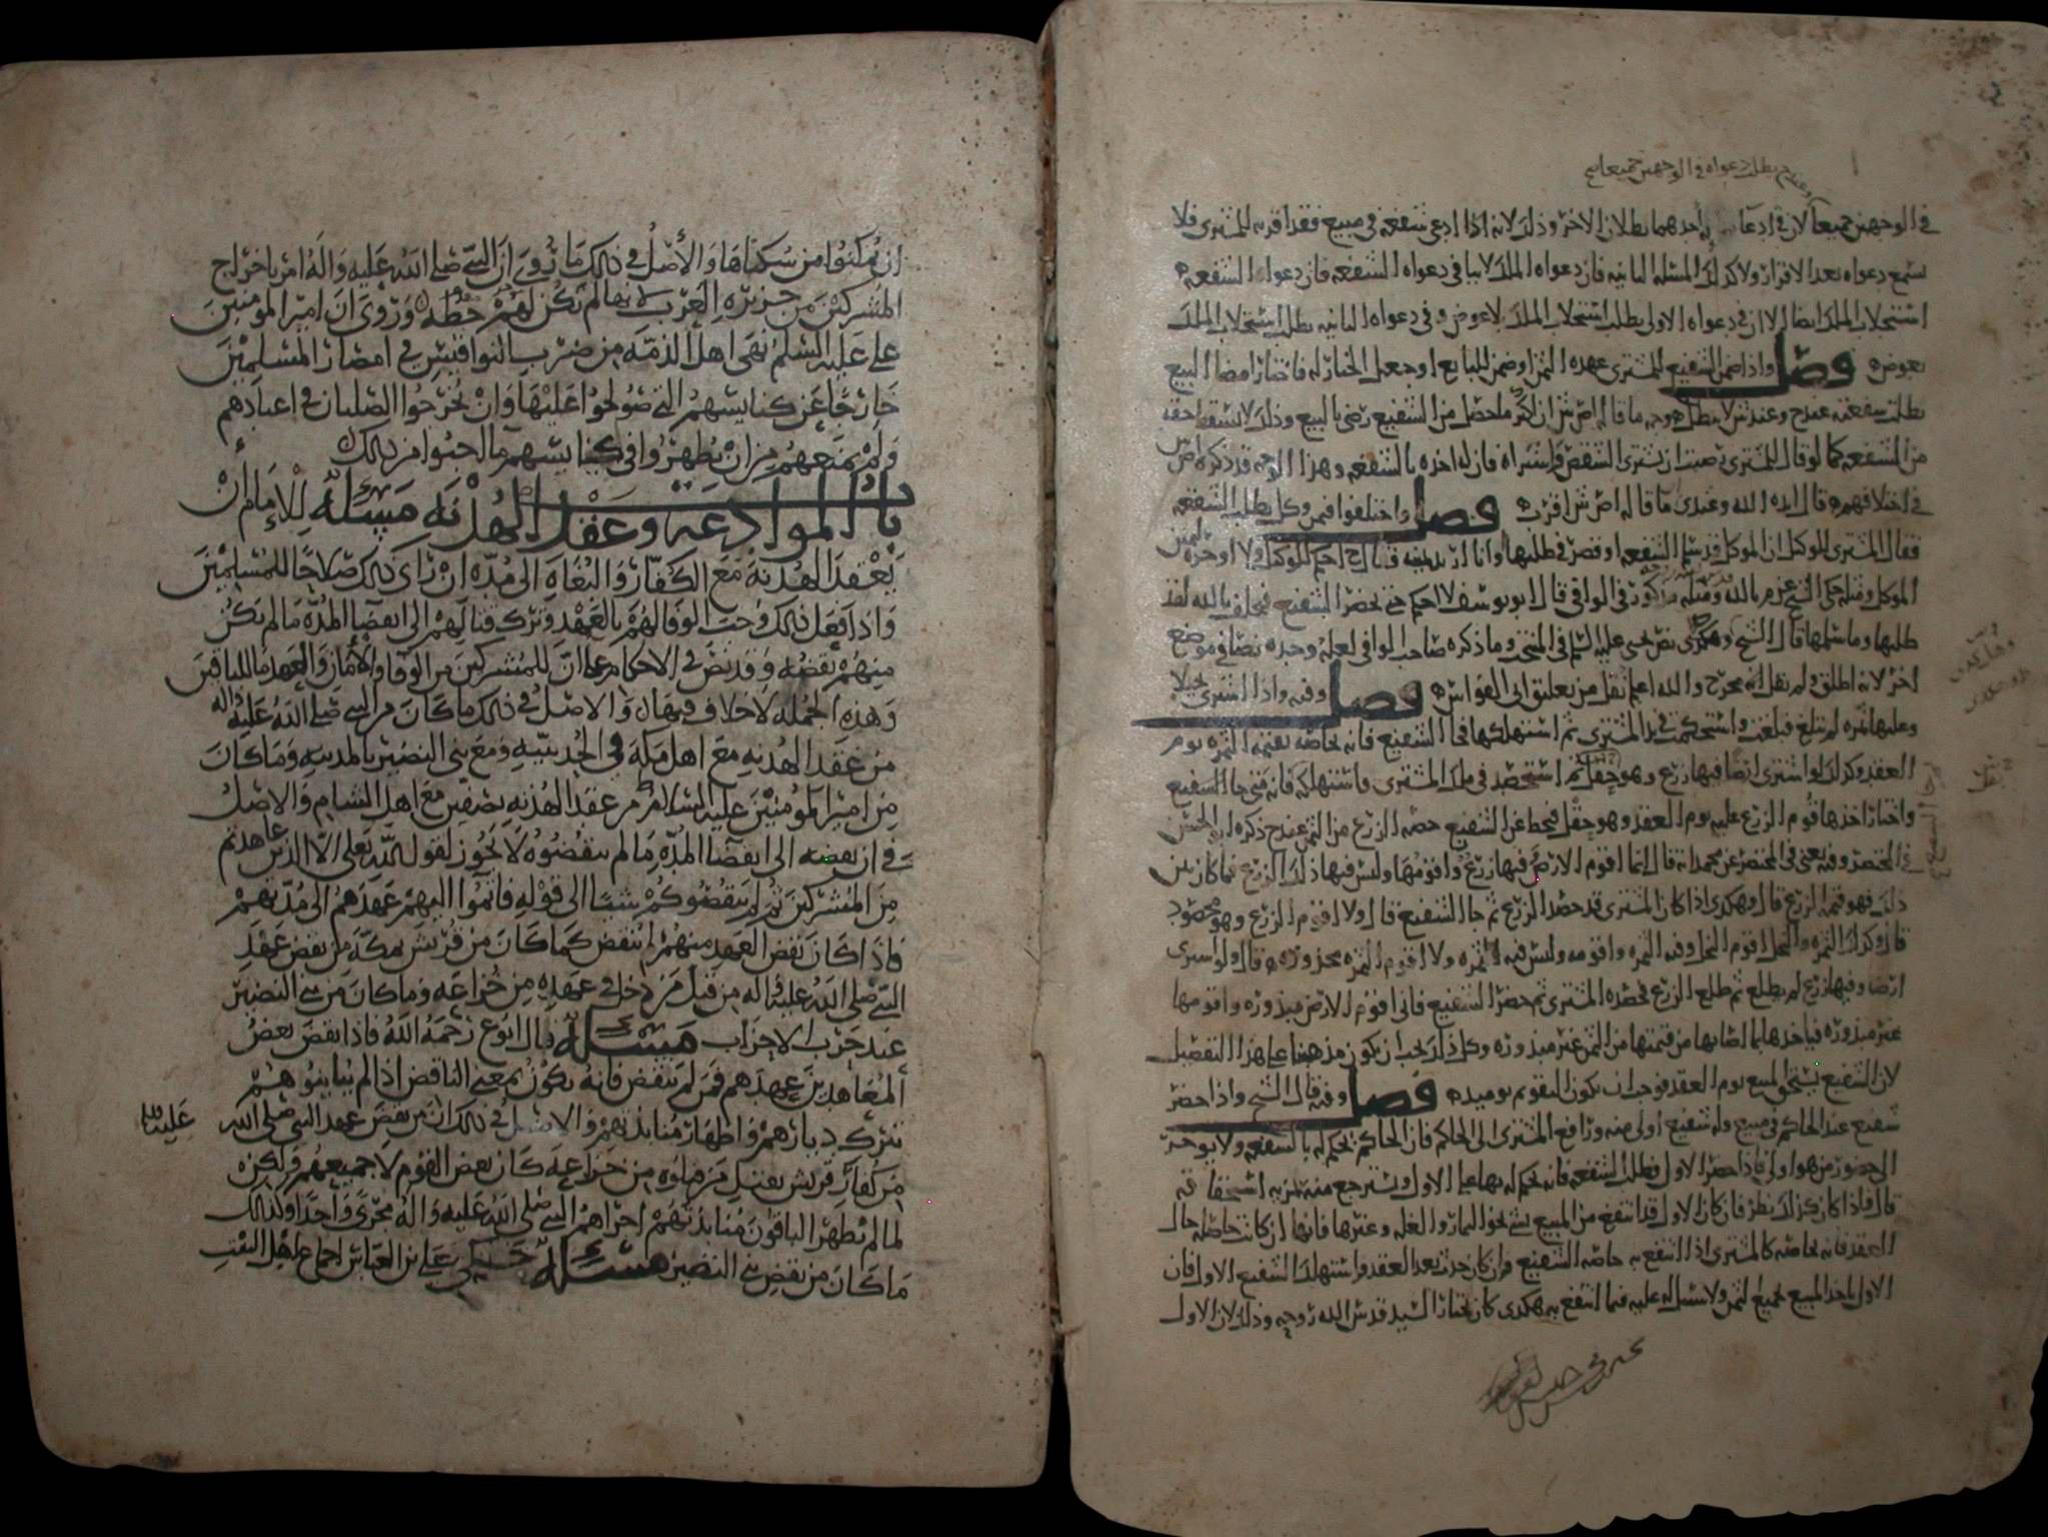 وعندم بطلت دعواه في الوجهين جميعا
في الوجهين جميعا لان في ادعا احدهما بطلان الاخر وذلك لانه اذا ادعى شفعه في مبيع فقد اقر به للمشتري فلا
تسمع دعواه بعد الاقرار ولا كذلك المسله الثانيه فان دعواه الملك لا ينافي دعواه الشفعه فان دعواه الشفعه
استجلاب الملك ايضا الا ان في دعواه الاولى يطلب استجلاب الملك لا عوض وفي دعواه الثانيه يطلب استجلاب الملك
بعوض فصل واذا ضمن الشفيع للمشتري عهده الثمن او ضمن للبايع او جعل الخيار له فاختار امضا البيع
بطلت شفعته عند ح وعند ش لا يبطل وجه ما قاله اص ش ان اكثر ما حصل من الشفيع رضى بالبيع وذلك لا يسقط حقه
من الشفعه كما لو قال للمشتري رضيت ان تشتري الشقص فاشتراه فان له اخذه بالشفعه وهذا الوجه قد ذكره اص ش
في اختلافهم قال ايده الله وعندي ما قاله اص ش اقرب فصل واختلفوا فيمن وكل بطلب الشفعه
فقال المشتري للوكيل ان الموكل قد سلم الشفعه او قصر في طلبها وانا اريد يمينه قال ح احكم للوكيل ولا اوخره ليمين
الموكل ومثله حكى الشيخ عن م بالله ومثله مذكور في الوافي قال ابو يوسف لا احكم حتى يحضر الشفيع فيحلف بالله لقد
طلبها وما سلمها قال الشيخ وهكذى نص يحيى عليه السلم في المنتخب وما ذكره صاحب الوافي لعله وجده نصا في موضع
اخر لانه اطلق ولم يقل انه مخرج والله اعلم نقل من تعليق ابي الفوارس فصل وفيه واذا اشترى نخيلا
وعليها ثمره لم تبلغ فبلغت واستحكمت في يد المشتري ثم استهلكها فجا الشفيع فانه يحاصه بقيمه الثمره يوم
العقد وكذلك لو اشترى ارضا فيها زرع وهو حقل ثم استحصد في ملك المشتري واستهلكه فانه متى جا الشفيع
واختار اخذها قوم الزرع عليه يوم العقد وهو حقل فيحط عن الشفيع حصه الزرع من الثمن عند ح ذكره ابو الحسن
في المختصر وفيه يعني في المختصر عن محمد انه قال انما اقوم الارض فيها زرع واقومها وليس فيها ذلك الزرع فما كان بين
ذلك فهو قيمه الزرع قال وهكذى اذا كان المشتري قد حصد الزرع ثم جا الشفيع قال ولا اقوم الزرع وهو محصود
قال وكذلك الثمره والنخل اقوم النخل وفيه الثمره واقومه وليس فيه الثمره ولا اقوم الثمره مجذوذه قال ولو اشترى
ارضا وفيها زرع لم يطلع ثم طلع الزرع فحصده المشتري ثم حضر الشفيع فاني اقوم الارض مبذوره واقومها
غير مبذوره فياخذها بما اصابها من قيمتها من الثمن غير مبذوره وكل ذلك يجب ان يكون مذهبنا على هذا التفصيل
لان الشفيع يستحق المبيع يوم العقد فوجب ان يكون التقويم يوميذ فصل وفيه قال الشيخ واذا حضر
شفيع عند الحاكم في مبيع وله شفيع اولى منه ورافع المشتري الى الحاكم فان الحاكم يحكم له بالشفعه ولا يوخر
الى حضور من هو اولى فاذا حضر الاول فطلب الشفعه فانه يحكم له بها على الاول ويسترجع منه
قال فاذا كان كذلك نظر فان كان الاول قد انتفع من المبيع بشي نحو الثمار والغله وغيرها فانها ان كانت حاصله حال
العقد فانه يحاصه كالمشتري اذا انتفع به حاصه الشفيع وان كان حدث بعد العقد واستهلك الشفيع الاول فان
الاول ياخذ المبيع بجميع الثمن ولا سبيل له عليه فيما انتفع به هكذى كان يختار السيد قدس الله روحه وذلك لان الاول
ان يمكنوا من سكناها والاصل في ذلك ما روي ان النبي صلى الله عليه واله امر باخراج
المشركين من جزيره العرب لانها لم تكن لهم خطه وروى ان امير المومنين
علي عليه السلم نهى اهل الذمه من ضرب النواقيس في امصار المسلمين
خارجا عن كنايسهم التي صولحوا عليها وان يخرجوا الصلبان في اعيادهم
ولم يمنعهم من ان يظهروا في كنايسهم ما احبوا من ذلك
باب الموادعه وعقد الهدنه مسله للامام ان
يعقد الهدنه مع الكفار والبغاه الى مده ان راى ذلك صلاحا للمسلمين
واذا فعل ذلك وجب الوفا لهم بالعهد وترك قتالهم الى انقضا المده ما لم يكن
منهم نقضه وقد نص في الاحكام على ان للمشركين من الوفا والامان والعهد ما للباقين
وهذه الجمله لا خلاف فيها والاصل في ذلك ما كان من النبي صلى الله عليه واله
من عقد الهدنه مع اهل مكه في الحديبيه ومع بني النضير بالمدينه وما كان
من امير المومنين عليه السلام من عقد الهدنه بصفين مع اهل الشام والاصل
في ان نقضه الى انقضا المده ما لم ينقضوه لا يجوز لقول الله تعلى الا الذين عاهدتم
من المشركين ثم لم ينقضوكم شيئا الى قوله فاتموا اليهم عهدهم الى مدتهم
فاذا كان نقض العهد منهم انتقض كما كان من قريش بمكه من نقض عهد
النبي صلى الله عليه واله من قتل من دخل في عهده من خزاعه وما كان من بني النضير
عند حرب الاحزاب مسله قال ابو ع رحمه الله فاذا نقض بعض
المعاهدين عهدهم فمن لم ينقض فانه يكون بمعنى الناقض اذا لم يباينوهم
بترك ديارهم واظهار منابذتهم والاصل في ذلك ان من نقض عهد النبي صلى الله عليه
من كفار قريش بقتل من قتلوه من خزاعه كان بعض القوم لا جميعهم ولكنه
لما لم يظهر الباقون منابذتهم اجراهم النبي صلى الله عليه واله مجرى واحدا وكذلك
ما كان من نقض بني النضير مسله حكى علي بن العباس اجماع اهل البيت